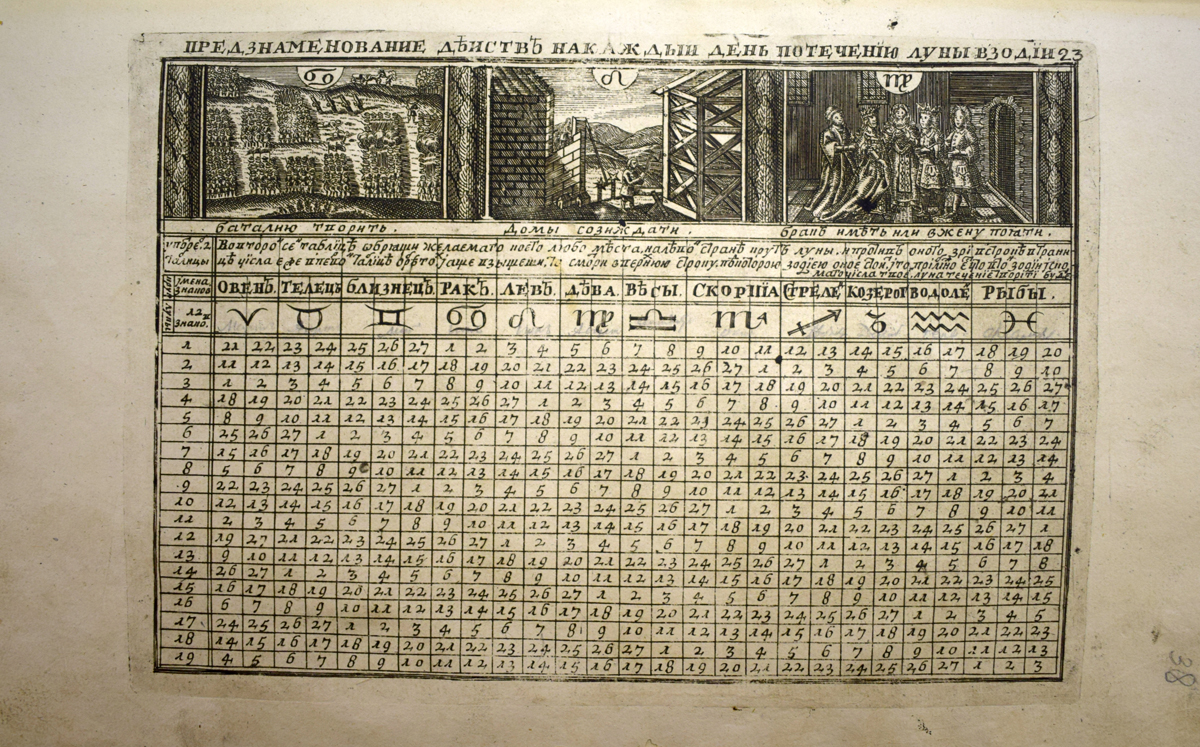 ПРЕДЗНАМЕНОВАНИЕ ДѢИСТВЪ НАКАЖДЫИ ДЕНЬ ПОТЕЧЕНІЮ ЛУНЫ ВЗОДІИ 23
♋ ♌ ♍
баталию творить. домы созиждати. бракъ имѣть или вжену поıати.
Вовторо се таблицѣ
имена знаковъ ОВЕНЪ. ТЕЛЕЦЪ БЛИЗНЕЦЪ. РАКЪ. ЛЕВЪ. ДѢВА. ВѢСЫ. СКОРПІІА СТРЕЛЕ КОЗЕРОГ ВОДОЛѢ РЫБЫ.
12 знако. ♈ ♉ ♊ ♋ ♌ ♍ ♎ ♏ ♐ ♑ ♒ ♓
1 21 22 23 24 25 26 27 1 2 3 4 5 6 7 8 9 10 11 12 13 14 15 16 17 18 19 20
2 11 12 13 14 15 16 17 18 19 20 21 22 23 24 25 26 27 1 2 3 4 5 6 7 8 9 10
3 1 2 3 4 5 6 7 8 9 10 11 12 13 14 15 16 17 18 19 20 21 22 23 24 25 26 27
4 18 19 20 21 22 23 24 25 26 27 1 2 3 4 5 6 7 8 9 10 11 12 13 14 15 16 17
5 8 9 10 11 12 13 14 15 16 17 18 19 20 21 22 23 24 25 26 27 1 2 3 4 5 6 7
6 25 26 27 1 2 3 4 5 6 7 8 9 10 11 12 13 14 15 16 17 18 19 20 21 22 23 24
7 15 16 17 18 19 20 21 22 23 24 25 26 27 1 2 3 4 5 6 7 8 9 10 11 12 13 14
8 5 6 7 8 9 10 11 12 13 14 15 16 17 18 19 20 21 22 23 24 25 26 27 1 2 3 4
9 22 23 24 25 26 27 1 2 3 4 5 6 7 8 9 10 11 12 13 14 15 16 17 18 19 20 21
10 12 13 14 15 16 17 18 19 20 21 22 23 24 25 26 27 1 2 3 4 5 6 7 8 9 10 11
11 2 3 4 5 6 7 8 9 10 11 12 13 14 15 16 17 18 19 20 21 22 23 24 25 26 27 1
12 19 27 21 22 23 24 25 26 27 1 2 3 4 5 6 7 8 9 10 11 12 13 14 15 16 17 18
13 9 10 11 12 13 14 15 16 17 18 19 20 21 22 23 24 25 26 27 1 2 3 4 5 6 7 8
14 26 27 1 2 3 4 5 6 7 8 9 10 11 12 13 14 15 16 17 18 19 20 21 22 23 24 25
15 16 17 18 19 20 21 22 23 24 25 26 27 1 2 3 4 5 6 7 8 9 10 11 12 13 14 15
16 6 7 8 9 10 11 12 13 14 15 16 17 18 19 20 21 22 23 24 25 26 27 1 2 3 4 5
17 24 25 26 27 1 2 3 4 5 6 7 8 9 10 11 12 13 14 15 16 17 18 19 20 21 22 23
18 14 15 16 17 18 19 20 21 22 23 24 25 26 27 1 2 3 4 5 6 7 8 9 10 11 12 13
19 4 5 6 7 8 9 10 11 12 13 14 15 16 17 18 19 20 21 22 23 24 25 26 27 1 2 3
38